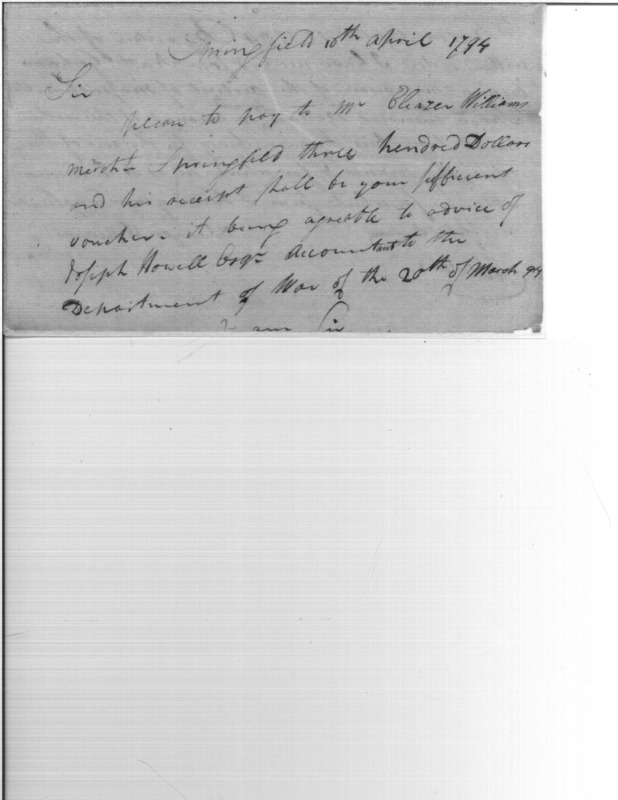 Springfield 10th april 1794
Sir
please to pay to Mr Eleazer Williams
mercht Springfield three hendred Dollars
and his receipt shall be your sufficient
voucher. it being agreable to advice of
Joseph Howell Esqr Accountant to the
Department of War of the 20th of March 94
I am Sir